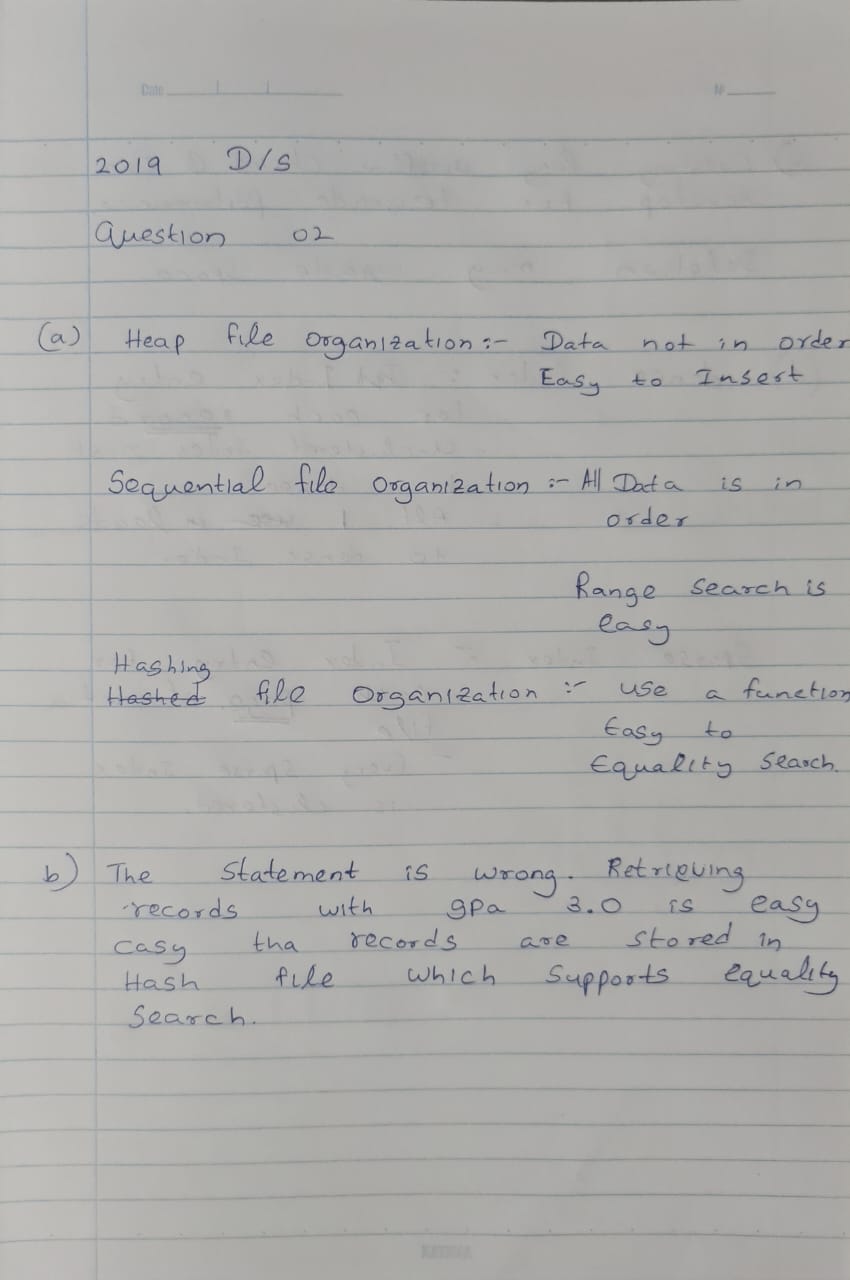 Date
No
2019 D/S
Question 02
(a) Heap file organization :- Data not in order
Easy to Insert
Sequential file Organization :- All Data is in
order
Range Search is
easy
Hashing
Hashed file Organization :- use a function
Easy to
Equality Search.
b) The Statement is wrong. Retrieving
records with gpa 3.0 is easy
casy tha records are stored in
Hash file which Supports equality
Search.